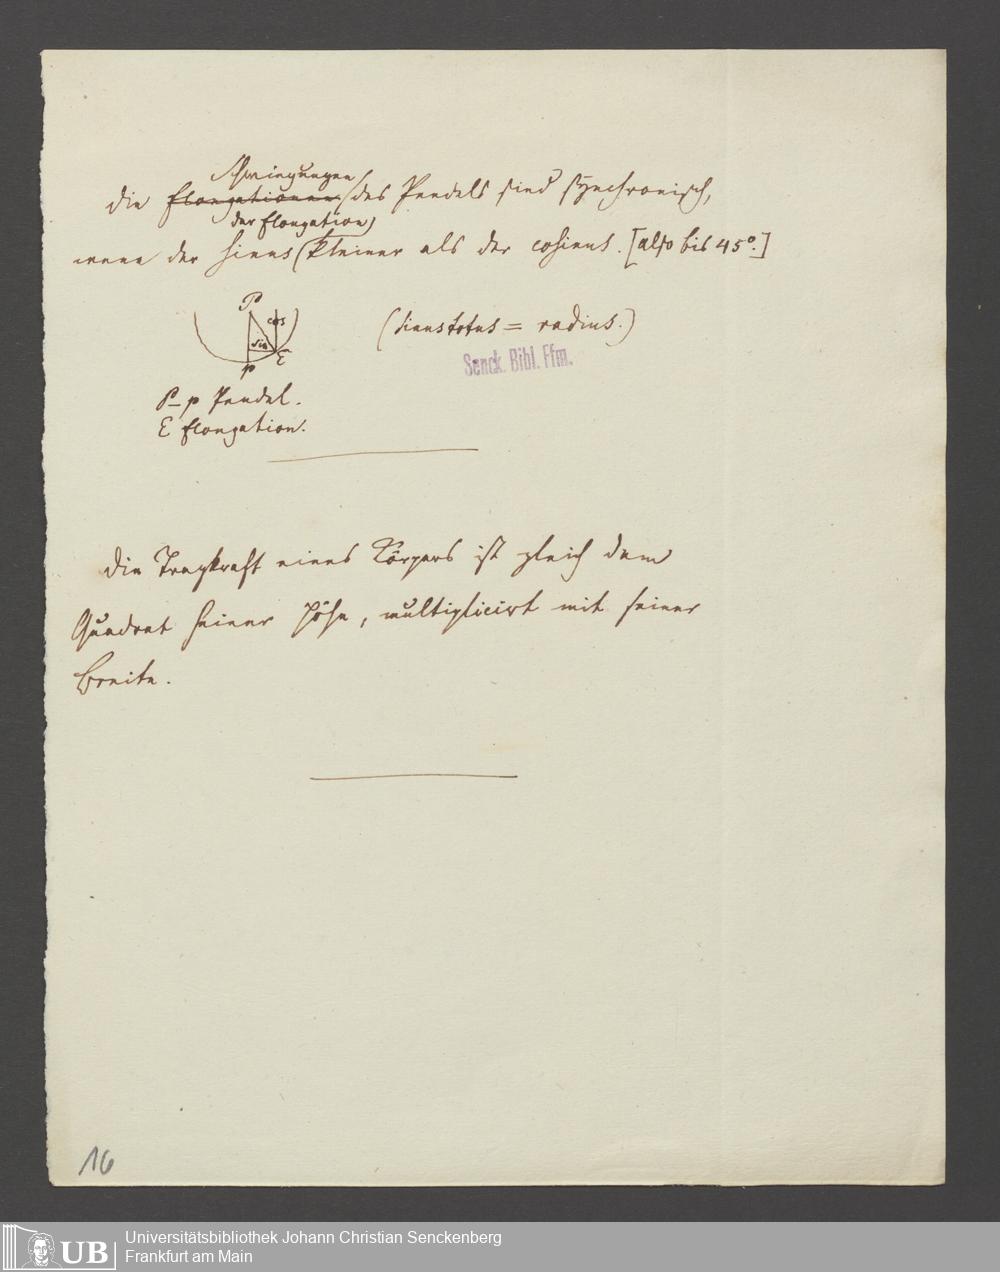 Schwingungen
die Elongationen des Pendels sind synchronisch,
der Elongation
wenn der Sinus kleiner als der cosinus. [also bis 45°.]
P
cos
sin
E
p
(Sinus totus = radius.)
Senck. Bibl. Ffm.
P–p Pendel.
E Elongation.
Die Tragkraft eines Körpers ist gleich dem
Quadrat seiner Höhe, multiplicirt mit seiner
Breite.
16
UB
Universitätsbibliothek Johann Christian Senckenberg
Frankfurt am Main